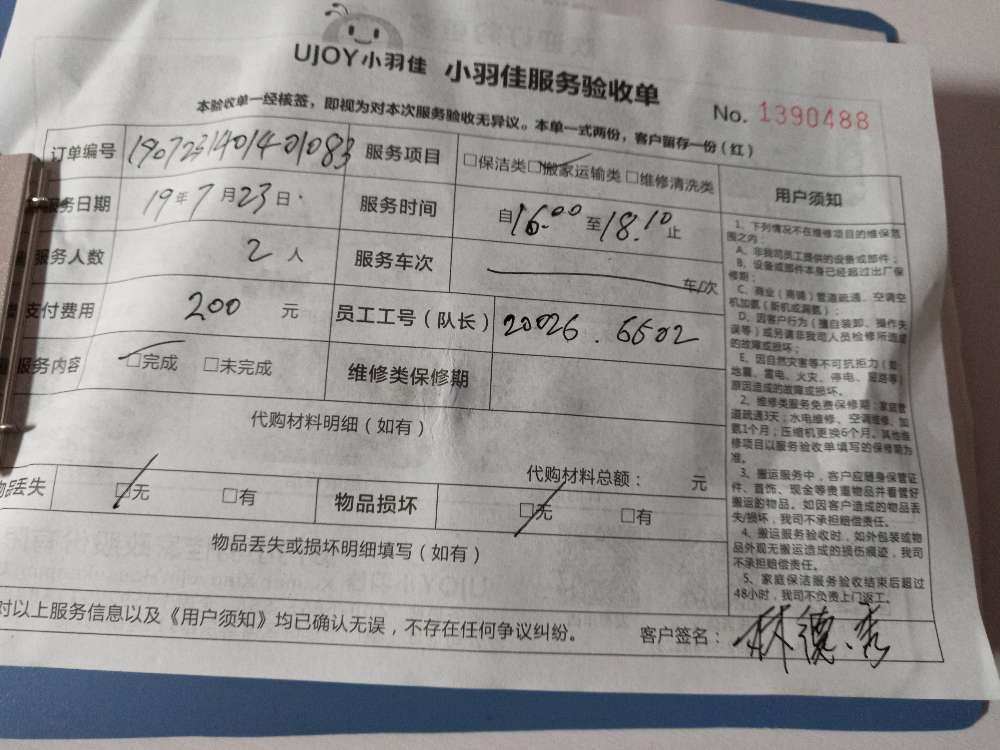 UJOY小羽佳 小羽佳服务验收单
No. 1390488
本验收单一经核签，即视为对本次服务验收无异议。本单一式两份，客户留存一份（红）
订单编号 1907231401401083 服务项目 □保洁类□搬家运输类 □维修清洗类
服务日期 19年7月23日 服务时间 自16:00至18:10止
服务人数 2人 服务车次 车/次
支付费用 200 元 员工工号（队长） 20026.6502
服务内容 □完成 □未完成 维修类保修期
代购材料明细（如有）
代购材料总额： 元
物品丢失 □无 □有 物品损坏 □无 □有
物品丢失或损坏明细填写（如有）
对以上服务信息以及《用户须知》均已确认无误，不存在任何争议纠纷。 客户签名：林德秀
用户须知
1、下列情况不在维修项目的维保范
围之内：
A、非我司员工提供的设备或部件；
B、设备或部件本身已经超过出厂保
修期；
C、商业（商铺）管道疏通、空调空
机加氨（新机或漏氨）；
D、因客户行为（擅自装卸、操作失
误等）或另请非我司人员检修所造成
的故障或损坏；
E、因自然灾害等不可抗拒力（如：
地震、雷电、火灾、停电、短路等）
原因造成的故障或损坏。
2、维修类服务免费保修期：家庭管
道疏通3天；水电维修、空调维修、加
氨1个月；压缩机更换6个月。其他维
修项目以服务验收单填写的保修期为
准。
3、搬运服务中，客户应随身保管证
件、首饰、现金等贵重物品并看管好
搬运的物品。如因客户造成的物品丢
失/损坏，我司不承担赔偿责任。
4、搬运服务验收时，如外包装或物
品外观无搬运造成的损伤痕迹，我司
不承担赔偿责任。
5、家庭保洁服务验收结束后超过
48小时，我司不负责上门返工。